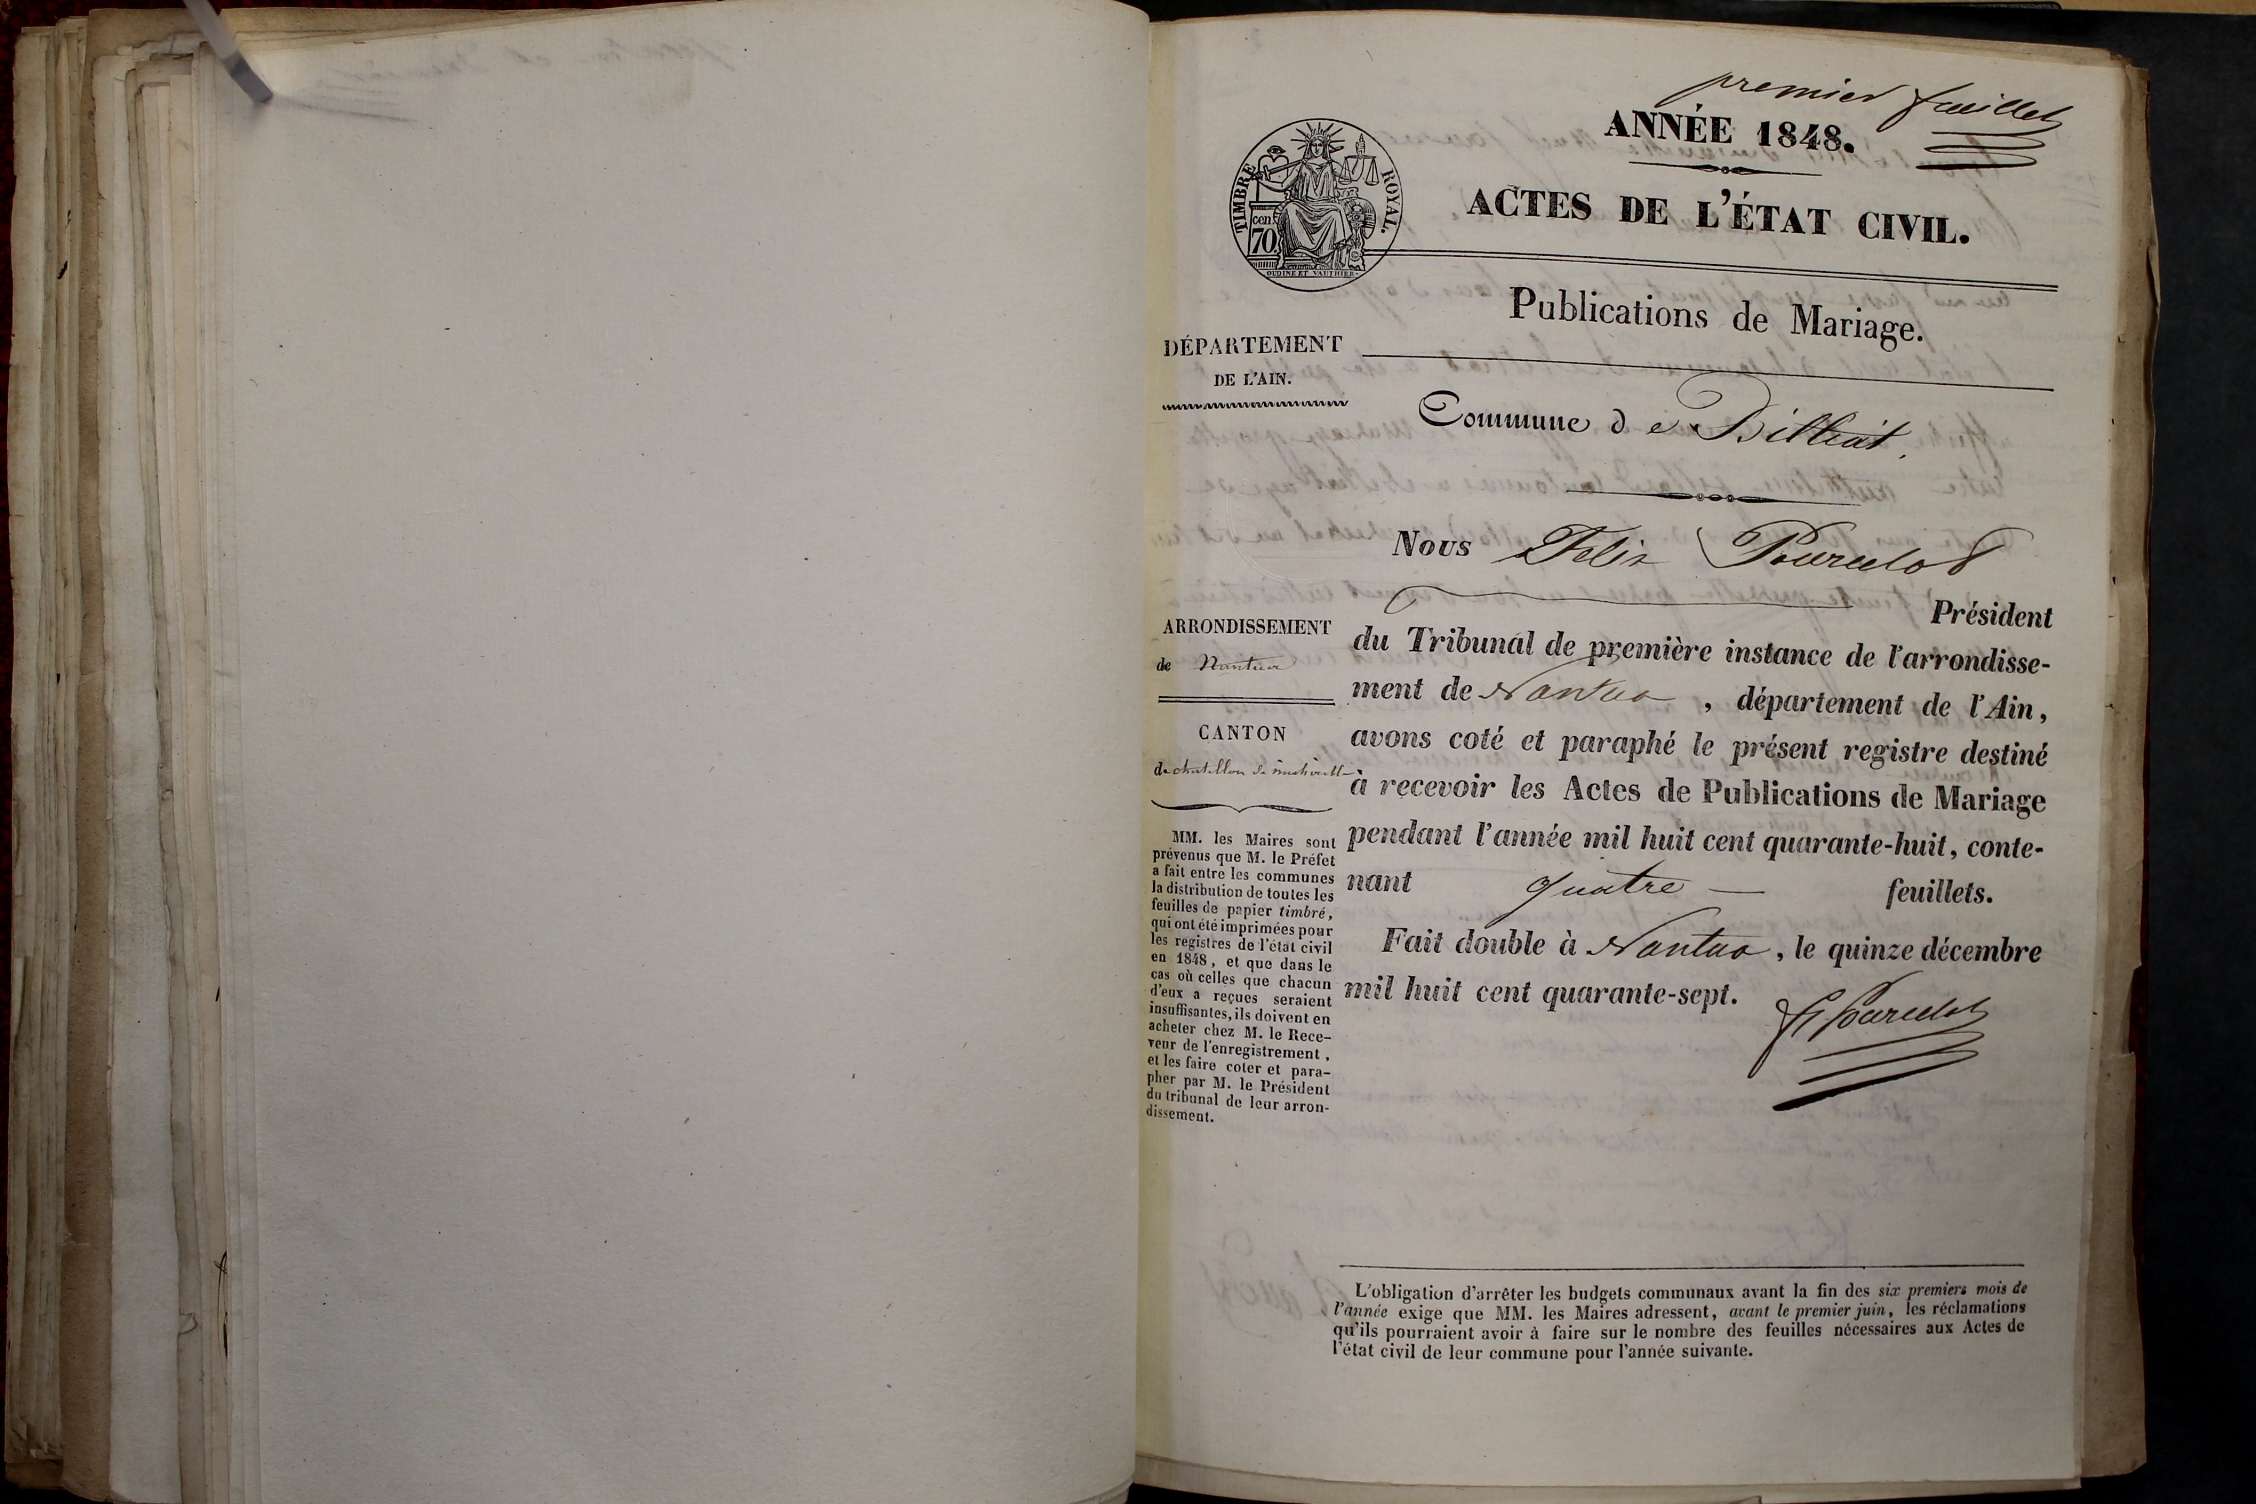 premier feuillet
ANNÉE 1848.
TIMBRE ROYAL.
cen
70
OUDINE ET VAUTHIER
ACTES DE L'ÉTAT CIVIL.
Publications de Mariage.
DÉPARTEMENT
DE L'AIN.
Commune de Billiat.
Nous Felix Pourcelot
Président
du Tribunal de première instance de l'arrondisse-
ment de Nantua, département de l'Ain,
avons coté et paraphé le présent registre destiné
à recevoir les Actes de Publications de Mariage
pendant l'année mil huit cent quarante-huit, conte-
nant quatre — feuillets.
Fait double à Nantua, le quinze décembre
mil huit cent quarante-sept.
F Pourcelot
ARRONDISSEMENT
de Nantua
CANTON
de chatillon de michaille
MM. les Maires sont
prévenus que M. le Préfet
a fait entre les communes
la distribution de toutes les
feuilles de papier timbré,
qui ont été imprimées pour
les registres de l'état civil
en 1848, et que dans le
cas où celles que chacun
d'eux a reçues seraient
insuffisantes, ils doivent en
acheter chez M. le Rece-
veur de l'enregistrement,
et les faire coter et para-
pher par M. le Président
du tribunal de leur arron-
dissement.
L'obligation d'arrêter les budgets communaux avant la fin des six premiers mois de
l'année exige que MM. les Maires adressent, avant le premier juin, les réclamations
qu'ils pourraient avoir à faire sur le nombre des feuilles nécessaires aux Actes de
l'état civil de leur commune pour l'année suivante.